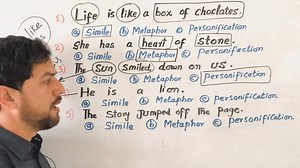 like
1) Life is like a box of choclates.
a Simile b Metaphor c Personification
2) She has a heart of stone.
a Simile b Metaphor c Personification
3) The sun smiled down on us.
a Simile b Metaphor c Personification
He is a lion.
a Simile b Metaphor c Personification
5) The story Jumped off the page.
a Simile b Metaphor c Personification